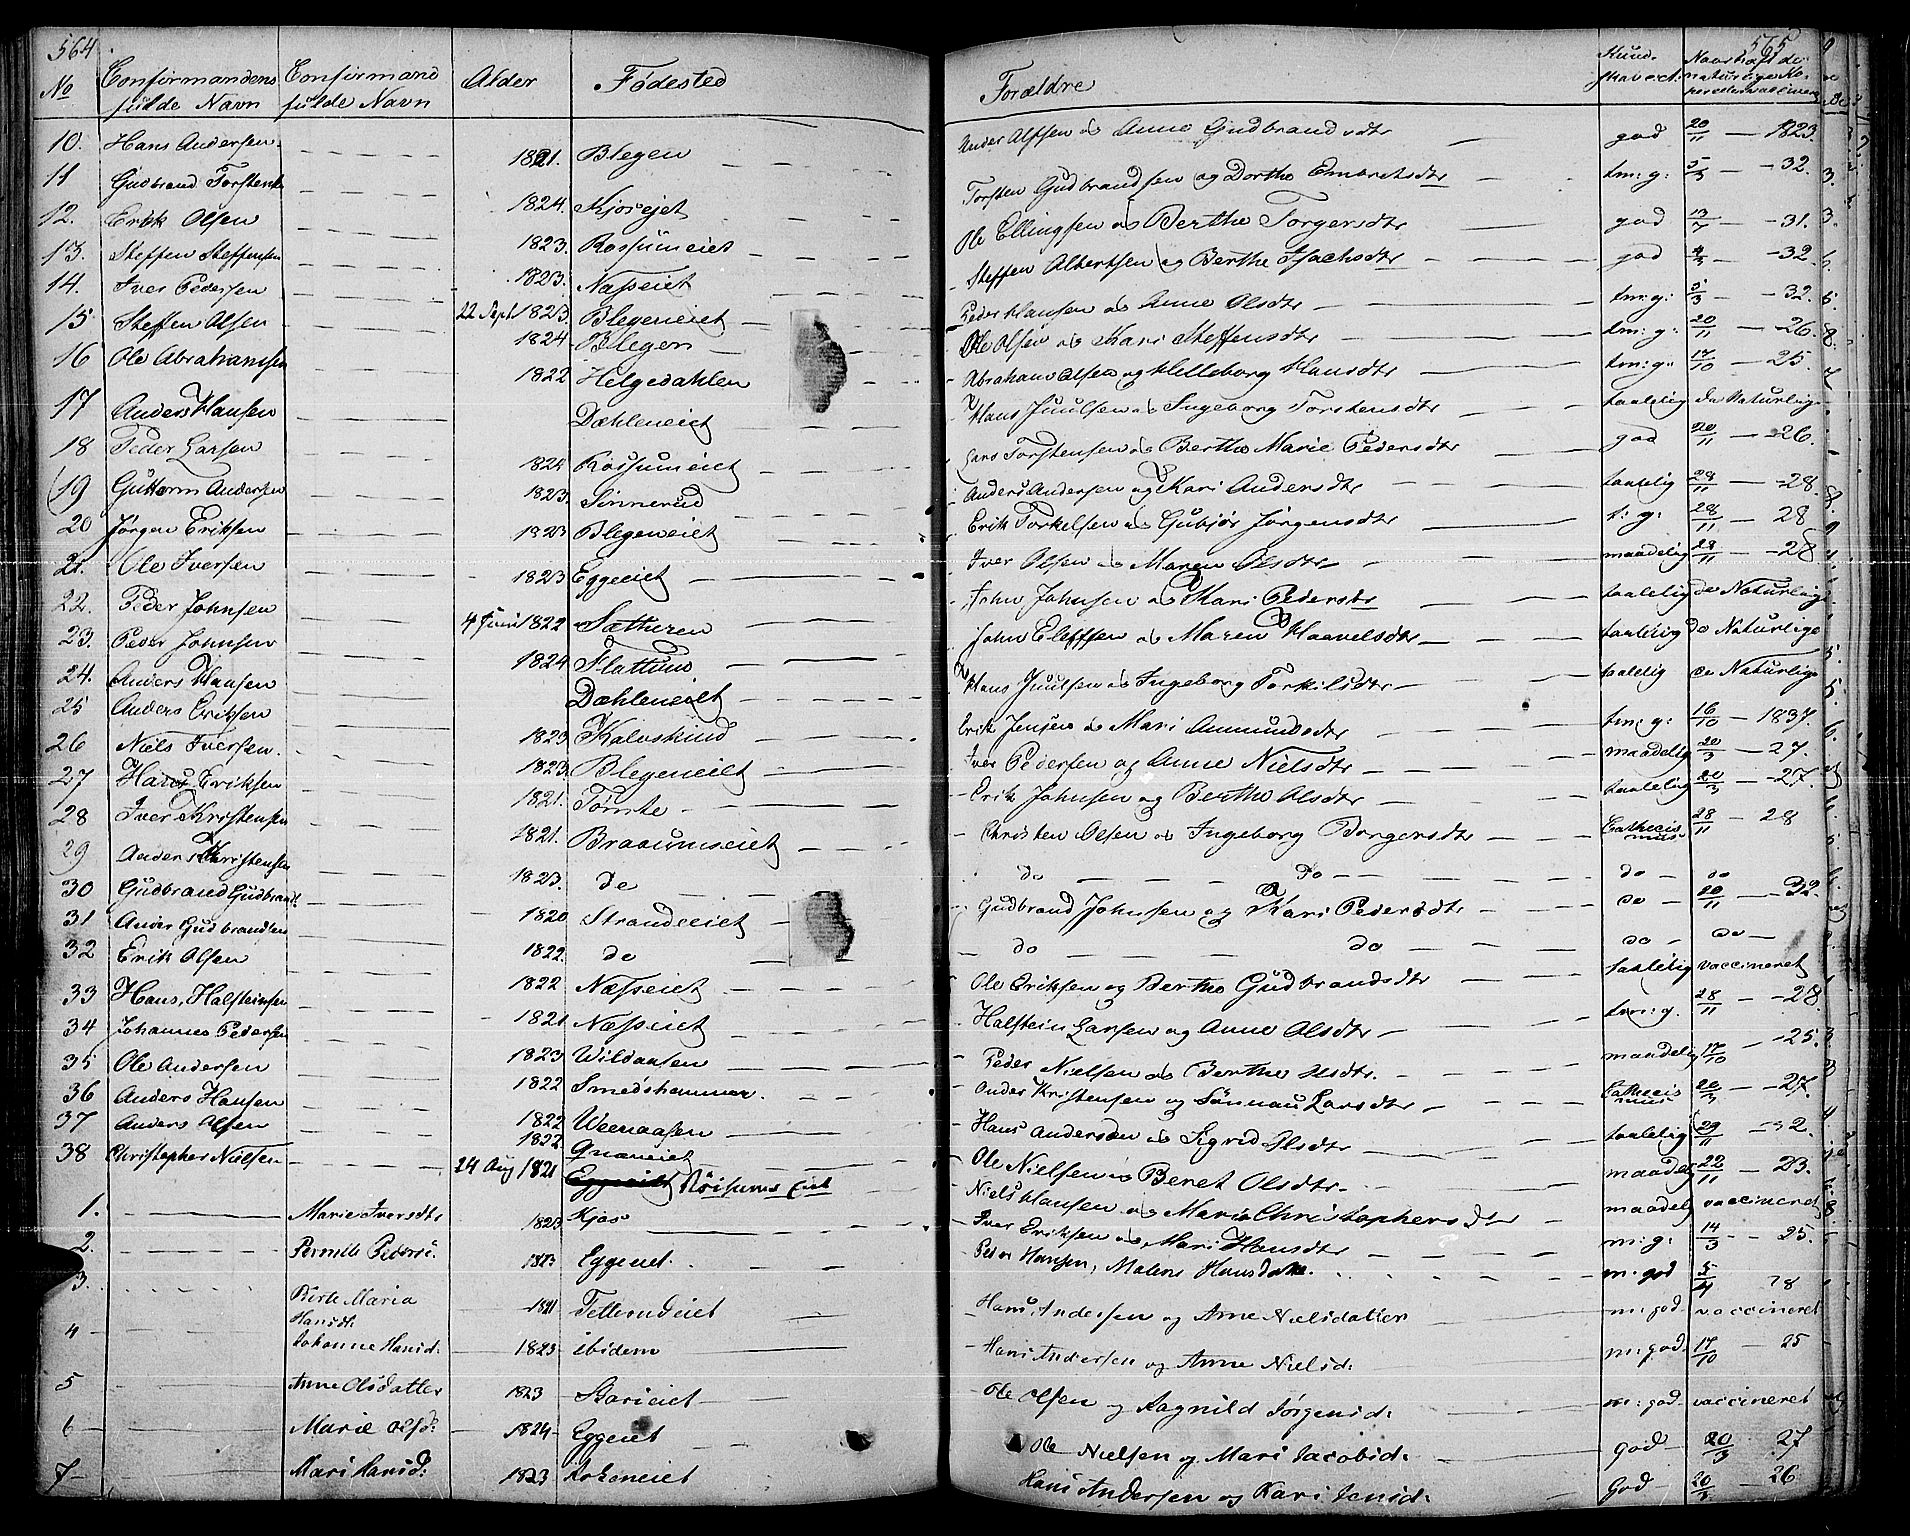 564
No Confirmandens Confirmand Alder Fødested
fulde Navn fulde Navn
10. Hans Andersen 1821. Blegen
11 Gudbrand Torstens 1824. Kjosejet
12. Erik Olsen 1823. Rossumeiet
13. Steffen Steffensen 1823. Næsseiet
14. Iver Pedersen 22 Sept 1823. Blegeneiet
15 Steffen Olsen 1824 Blegen
16 Ole Abrahamsen 1822 Helgedahlen
17 Anders Hansen Dæhleneiet
18 Peder Larsen 1824 Rossumeiet
19 Guttorm Andersen 1823. Sønnerud
20 Jørgen Eriksen 1823 Blegeneiet
21. Ole Iversen 1823 Eggeeiet
22. Peder Johnsen 4 Juni 1822 Sætheren
23. Peder Johnsen 1824 Flattum
24. Anders Hansen Dæhleneiet
25 Anders Eriksen 1823 Kalvskind
26 Niels Iversen. 1823. Blegeneiet
27 Hans Eriksen 1821. Tømte
28 Iver Kristensen 1821. Braaumseiet
29 Anders Christensen 1823. do
30 Gudbrand Gudbrands 1820. Strandeeiet
31 Ander Gudbrandsen 1822. do
32 Erik Olsen 1822 Næsseiet
33 Hans Halsteinsen 1821 Næsseiet
34 Johannes Pedersen 1823 Wildaasen
35 Ole Andersen 1822 Smedshammer.
36 Anders Hansen 1822 Weenaasen
37 Anders Olsen 1822
38 Christopher Nielsen 24 Aug 1821
1. Marie Iversdtr 1823 Kjos
2. Pernille Peders 1823 Eggeeiet.
3. Birte Maria
Hansdt. 1821
4 Johanne Hansd: 1823 ibidem
5 Anne Olsdatter 1823
6 Marie Olsd: 1824 Eggeeiet
7 Mari Hansd: 1823
565
Forældre Kund-
skab
Ander Olsen og Anne Gudbrandsdtr god 20/11 1823.
Torsten Gudbrandsen og Dorthe Embretsdtr tm: g: 5/3 32.
Ole Ellingsen og Berthe Torgersdtr god 13/7 31.
Steffen Albertsen og Berthe Isachsdtr god 4/3 32.
Peder Hansen og Anne Olsdtr tm: g: 5/3 32.
Ole Olsen og Kari Steffensdtr tm: g: 20/11 26.
Abraham Olsen og Helleborg Hansdtr tm: g: 17/10 25.
Hans Juulsen og Ingeborg Torstensdtr taalelig de Naturlige
Lars Torstensen og Berthe Marie Pedersdtr god 20/11 26.
Anders Andersen og Kari Andersdtr taalelig 28/11 28.
Erik Torkelsen og Gubjør Jørgensdtr t: g: 28/11 28
Iver Olsen og Maren Olsdtr maadelig 28/11 28
John Johnsen og Kari Pedersdtr taalelig de Naturlige
John Eleffsen og Maren Haavelsdtr taalelig de Naturlige
Hans Juulsen og Ingeborg Torkilsdtr taalelig de Naturlige
Erik Jensen og Mari Ammundsdtr tm: g: 16/10 1837.
Iver Pedersen og Anne Nielsdtr maadelig 20/3 27.
Erik Johnsen og Berthe Olsdtr taalelig 20/3 27.
Christen Olsen og Ingeborg Borgersdtr Cathecis
mus 28/11 28
do do do do
Gudbrand Johnsen og Kari Pedersdtr do 20/11 32.
do do do do
Ole Eriksen og Berthe Gudbrandsdtr taalelig vaccineret
Halstein Larsen og Anne Olsdtr tm: g. 28/11 28
Peder Nielsen og Berthe Olsdtr. maadelig 17/10 25.
Ander Kristensen og Sønnau Larsdtr Cathecis
mus 20/3 27.
Hans Andersen og Sigrid Olsdtr taalelig 29/11 32.
Ole Nielsen og Beret Olsdtr. maadel 22/11 23.
Niels Hansen og Maria Christophersdtr maadel vaccineret
Iver Eriksen og Mari Hansdtr m: g: 14/3 25.
Peder Hansen, Malene Hansdatter. m: god 5/4 28
Hans Andersen og Anne Nielsdatter m: god vaccineret
Hans Andersen og Anne Nielsd: m: god. 17/10 25
Ole Olsen og Ragnild Jørgensd: m: god. vaccineret
Ole Nielsen og Mari Jacobsd: god 20/3 27
Hans Andersen og Kari Jensd: God 20/3 26